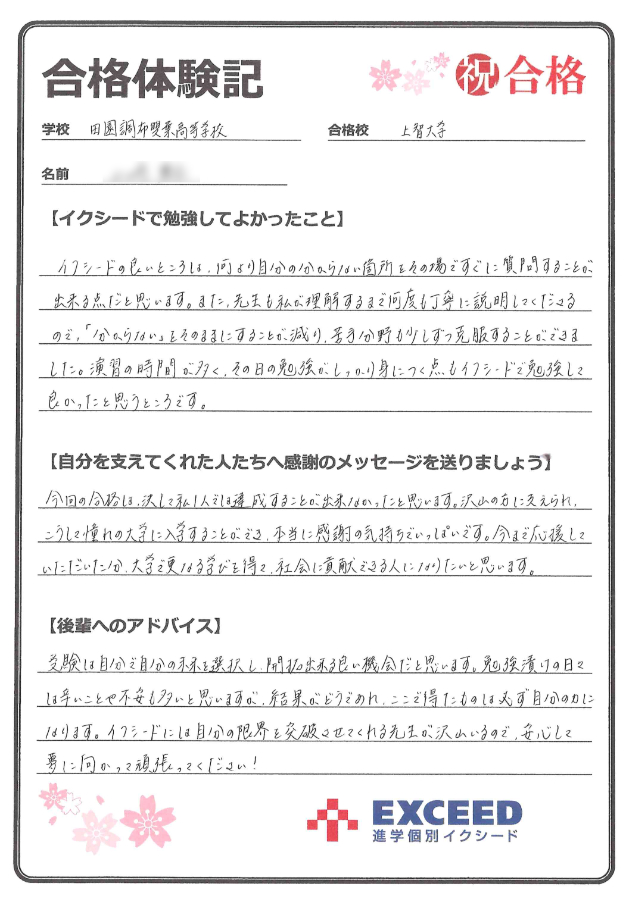 合格体験記
祝 合格
学校 田園調布雙葉高等学校
合格校 上智大学
名前
【イクシードで勉強してよかったこと】
イクシードの良いところは、何より自分の分からない箇所をその場ですぐに質問することが
出来る点だと思います。また、先生も私が理解するまで何度も丁寧に説明してくださる
ので、「分からない」をそのままにすることが減り、苦手分野も少しずつ克服することができま
した。演習の時間が多く、その日の勉強がしっかり身につく点もイクシードで勉強して
良かったと思うところです。
【自分を支えてくれた人たちへ感謝のメッセージを送りましょう】
今回の合格は、決して私1人では達成することが出来なかったと思います。沢山の方に支えられ、
こうして憧れの大学に入学することができ、本当に感謝の気持ちでいっぱいです。今まで応援して
いただいた分、大学で更なる学びを得て、社会に貢献できる人になりたいと思います。
【後輩へのアドバイス】
受験は自分で自分の未来を選択し、開拓出来る良い機会だと思います。勉強漬けの日々
は辛いことや不安も多いと思いますが、結果がどうであれ、ここで得たものは必ず自分の力に
なります。イクシードには自分の限界を突破させてくれる先生が沢山いるので、安心して
夢に向かって頑張ってください！
EXCEED
進学個別イクシード